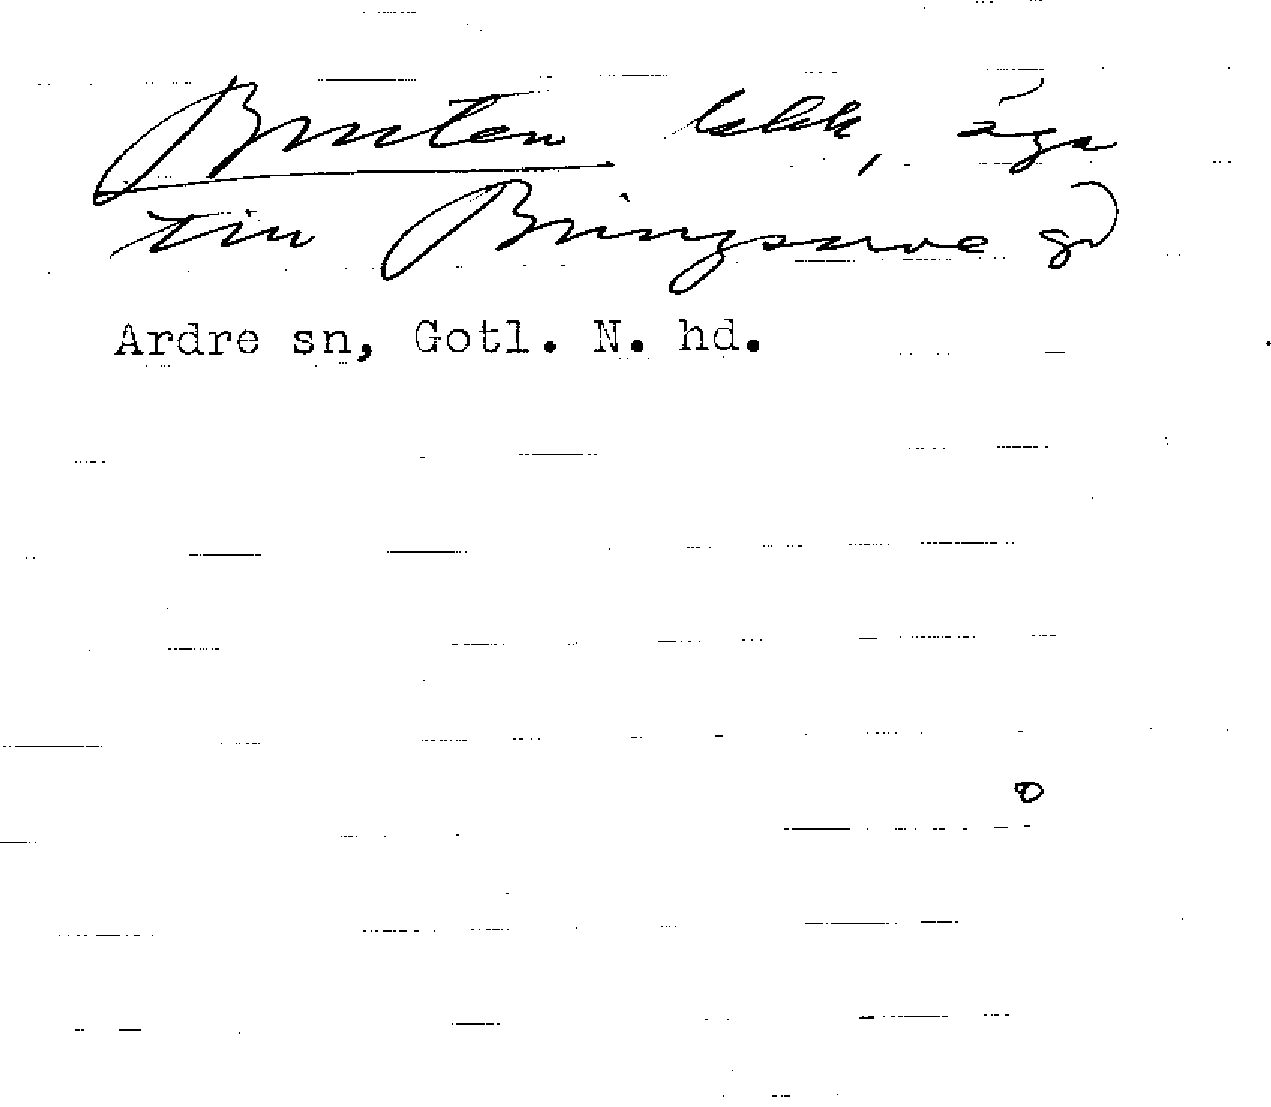 Bruten lekk, äga
tin Bringsarve gd
Ardre sn, Gotl. N. hd.